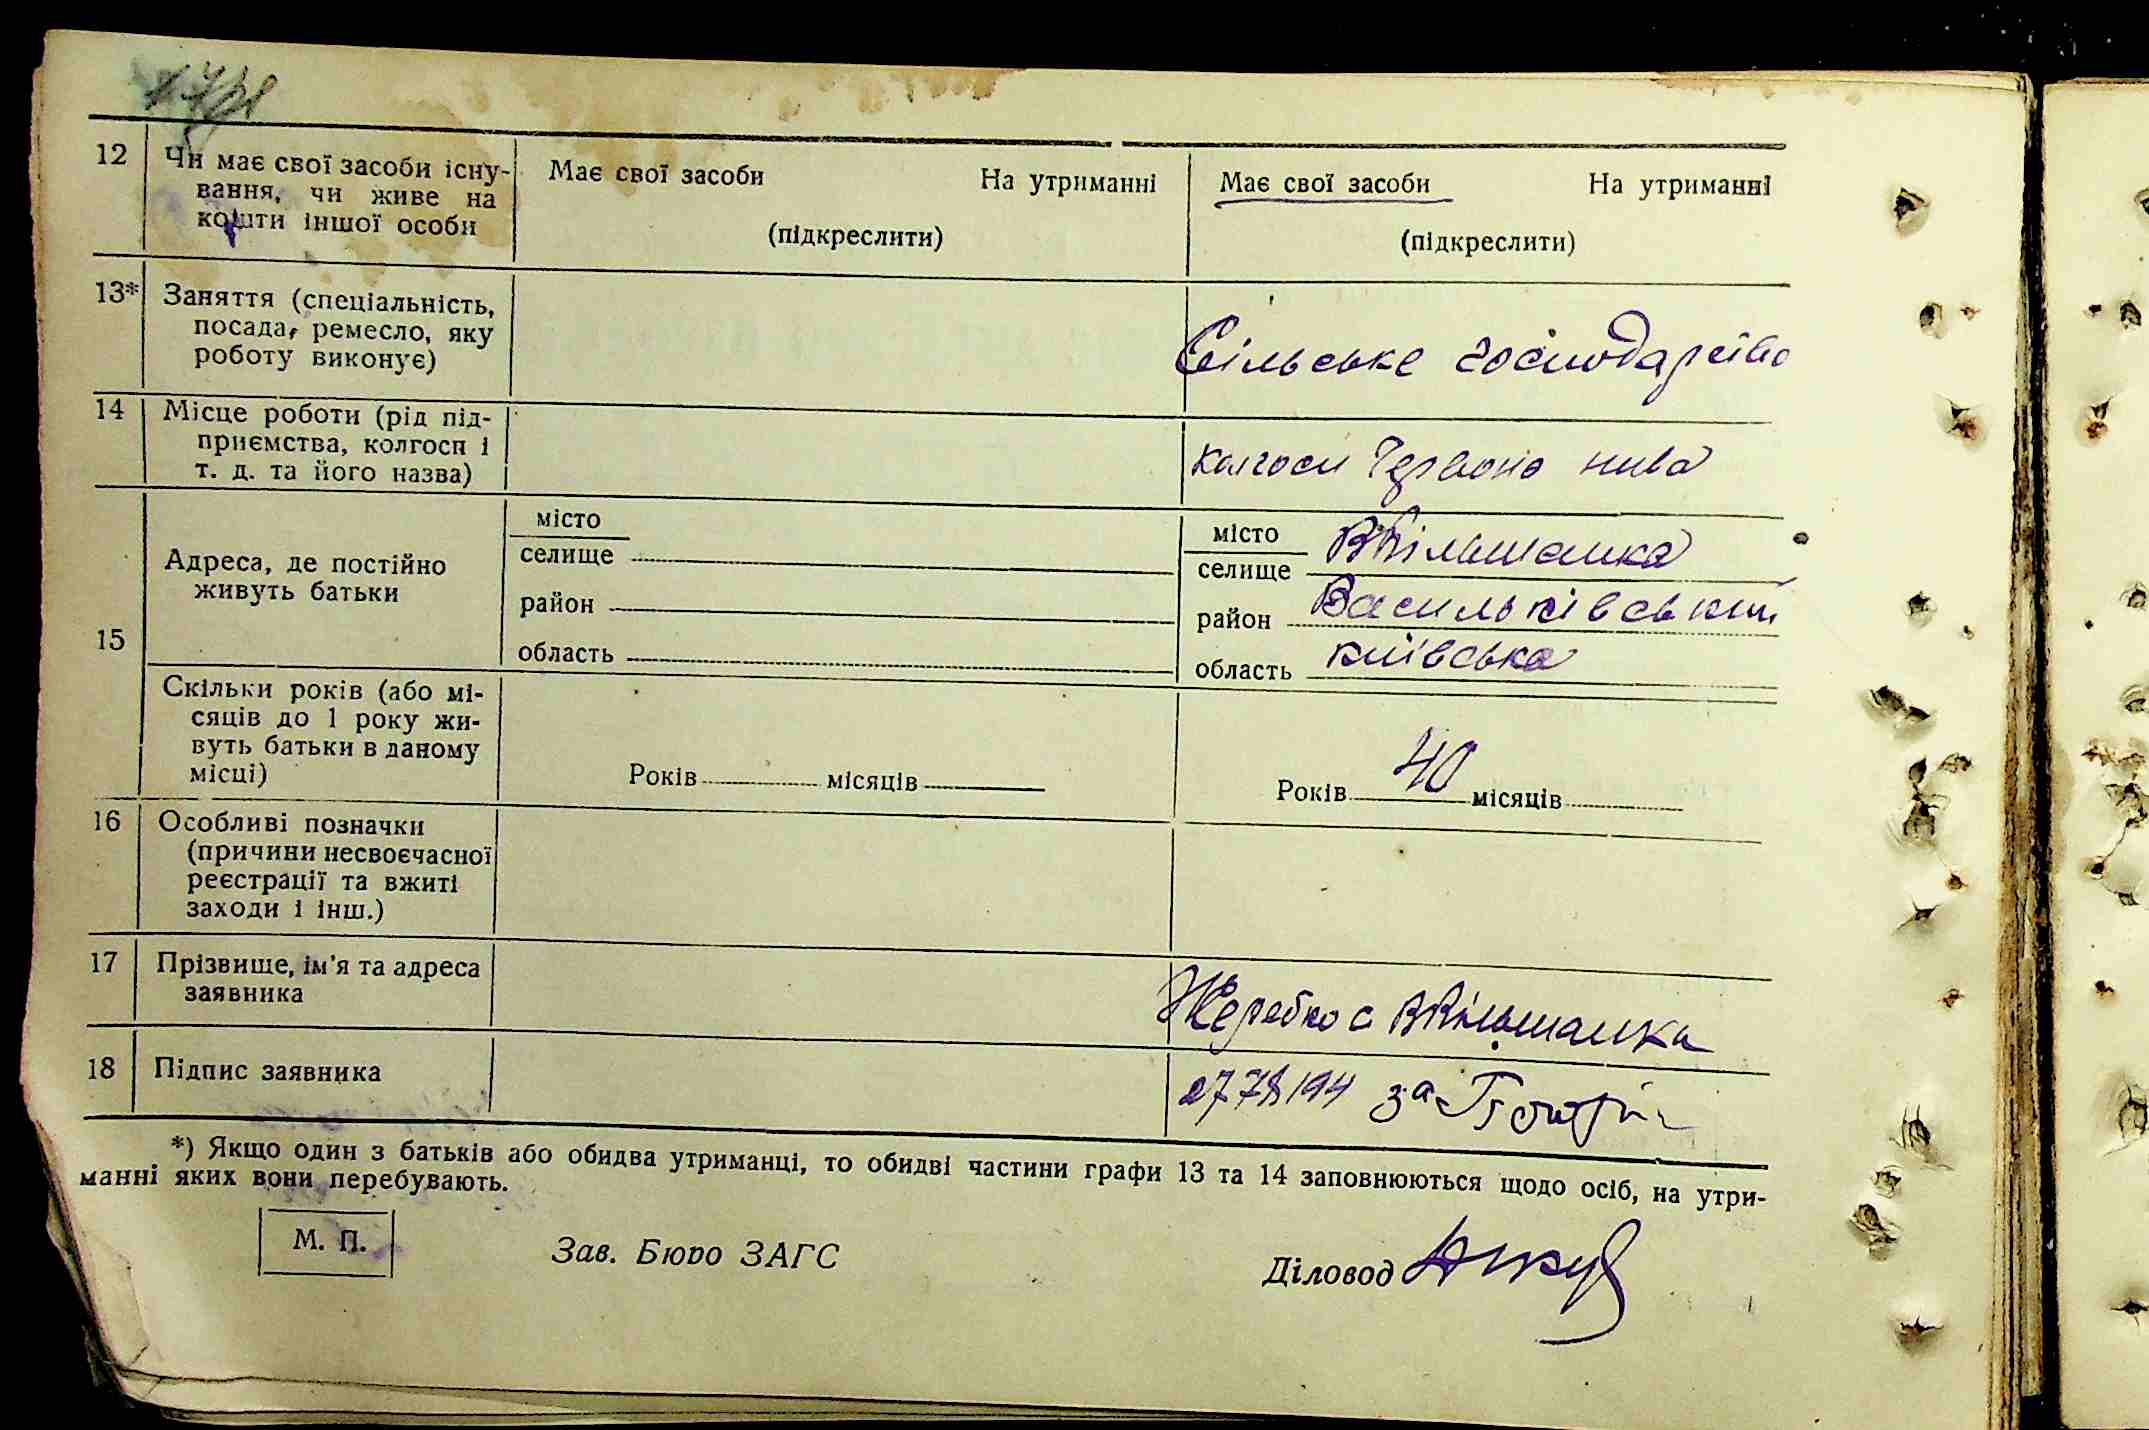 12 Чи має свої засоби існу-
вання, чи живе на
кошти іншої особи
Має свої засоби На утриманні
(підкреслити)
Має свої засоби На утриманні
(підкреслити)
13* Заняття (спеціальність,
посада, ремесло, яку
роботу виконує)
Сільське господарство
14 Місце роботи (рід під-
приємства, колгосп і
т. д. та його назва)
колгосп Червона нива
15
Адреса, де постійно
живуть батьки
місто
селище
район
область
місто
селище ВВільшанка
район Васильківський
область київська
Скільки років (або мі-
сяців до 1 року жи-
вуть батьки в даному
місці)
Років місяців
Років 40 місяців
16 Особливі позначки
(причини несвоєчасної
реєстрації та вжиті
заходи і інш.)
17 Прізвище, ім'я та адреса
заявника
Жеребко с ВВільшанка
18 Підпис заявника
за
*) Якщо один з батьків або обидва утриманці, то обидві частини графи 13 та 14 заповнюються щодо осіб, на утри-
манні яких вони перебувають.
М. П.
Зав. Бюро ЗАГС
Діловод